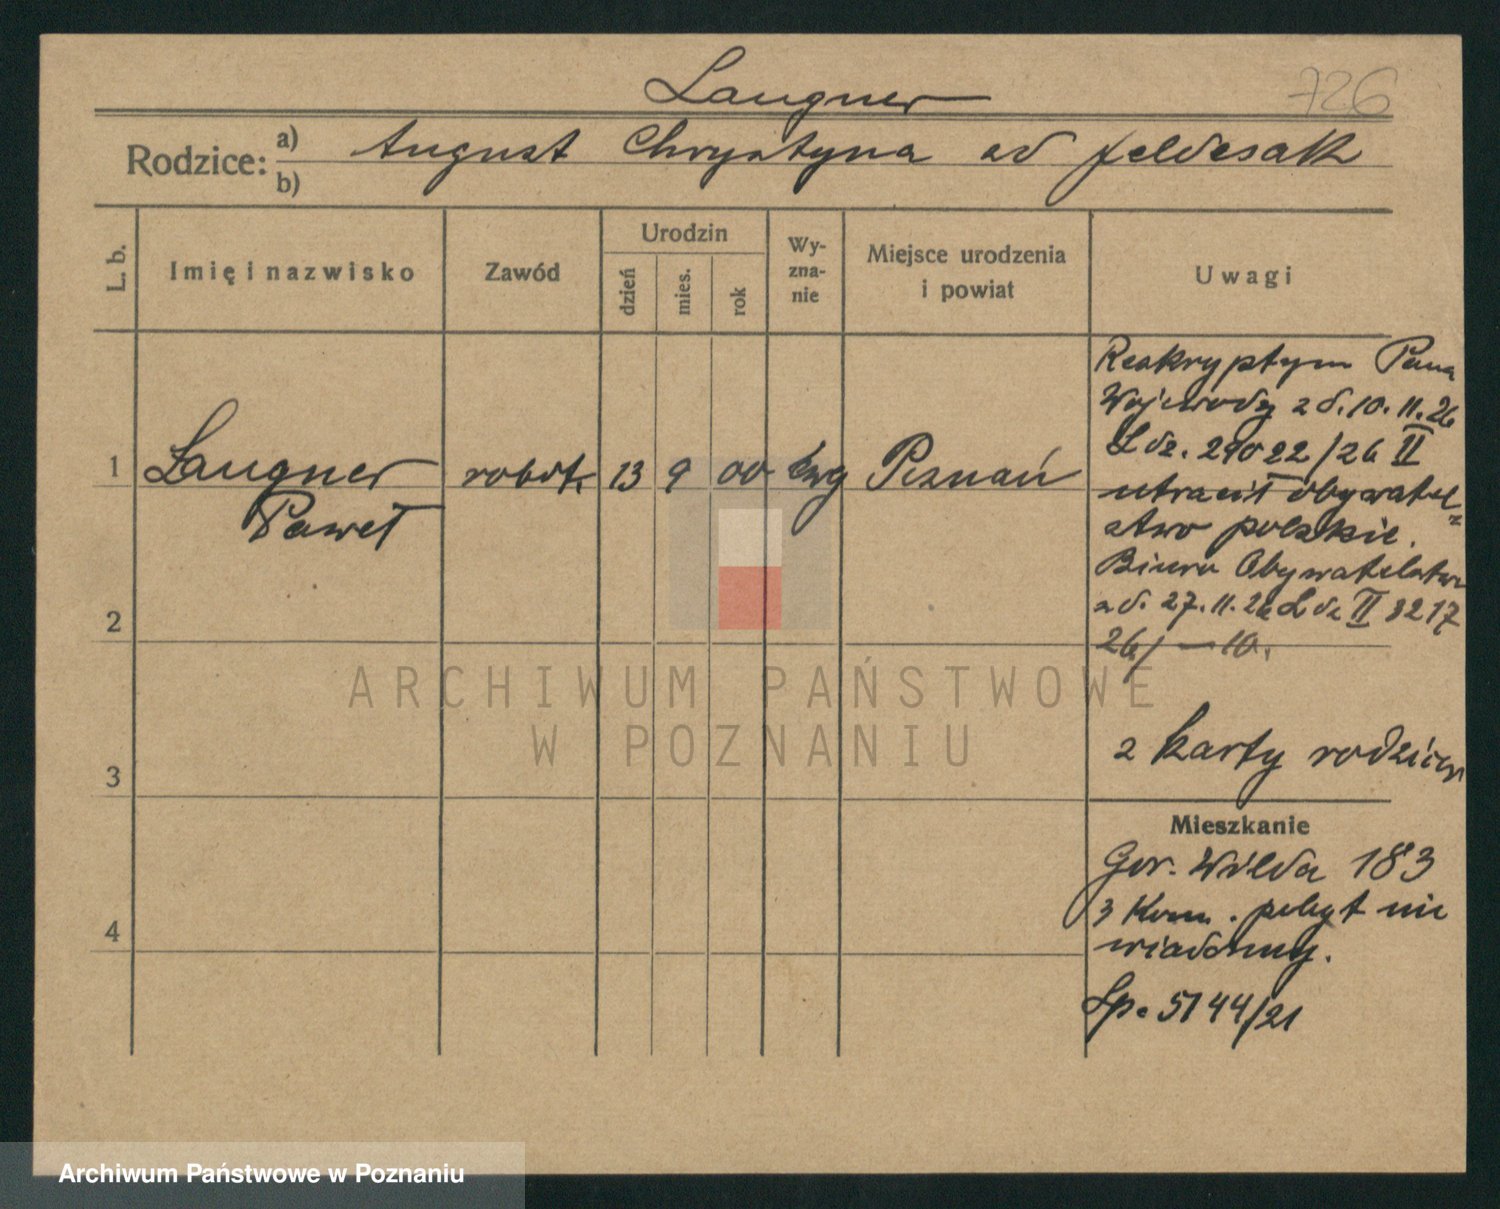 Langner
726
Rodzice: a) August Chrystyna od Feldesak
b)
L. b.
Imię i nazwisko
Zawód
Urodzin
dzień
mies.
rok
Wy-
zna-
nie
Miejsce urodzenia
i powiat
Uwagi
1
Langner
Paweł
robot.
13
9
00
ewg
Poznań
Reskryptym Pana
Wojewody z d. 10. 11. 26
L dz. 29022/26 II
utracił obywatel-
stwo polskie.
Biuro Obywatelstwa
z d. 27. 11. 26 L dz II 3217
26/ — 10.
2
z karty rodziców
3
Mieszkanie
Gór. Wilda 183
3 Kom. pobyt nie
wiadomy.
Lp. 5144/21
4
ARCHIWUM PAŃSTWOWE
W POZNANIU
Archiwum Państwowe w Poznaniu